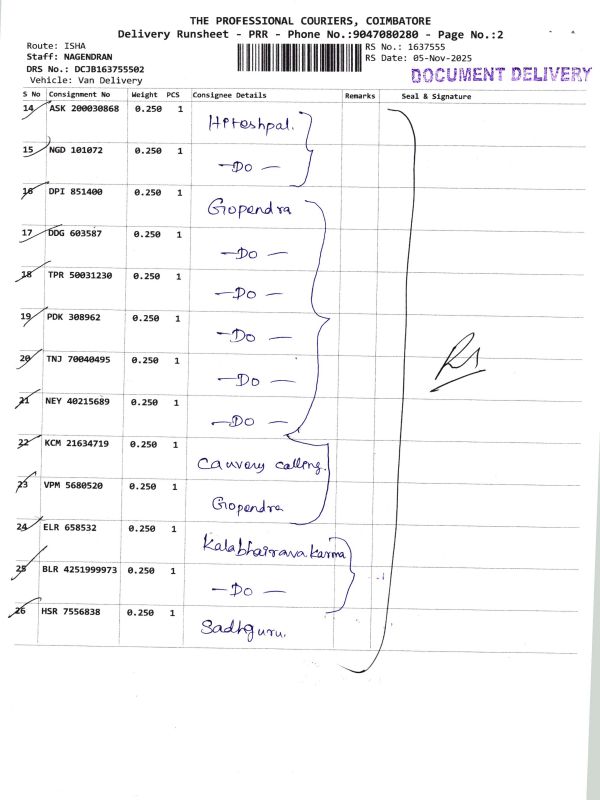 THE PROFESSIONAL COURIERS, COIMBATORE
Delivery Runsheet - PRR - Phone No.:9047080280 - Page No.:2
Route: ISHA
Staff: NAGENDRAN
DRS No.: DCJB163755502
Vehicle: Van Delivery
RS No.: 1637555
RS Date: 05-Nov-2025
DOCUMENT DELIVERY
S No Consignment No Weight PCS Consignee Details Remarks Seal & Signature
14 ASK 200030868 0.250 1
15 NGD 101072 0.250 1 —Do—
16 DPI 851400 0.250 1 Gopendra
17 DDG 603587 0.250 1 —Do—
18 TPR 50031230 0.250 1 —Do—
19 PDK 308962 0.250 1 —Do—
20 TNJ 70040495 0.250 1 —Do—
21 NEY 40215689 0.250 1 —Do—
22 KCM 21634719 0.250 1 Cauvery calling.
23 VPM 5680520 0.250 1 Gopendra
24 ELR 658532 0.250 1 Kalabhairava karma
25 BLR 4251999973 0.250 1 —Do—
26 HSR 7556838 0.250 1 Sadhguru.